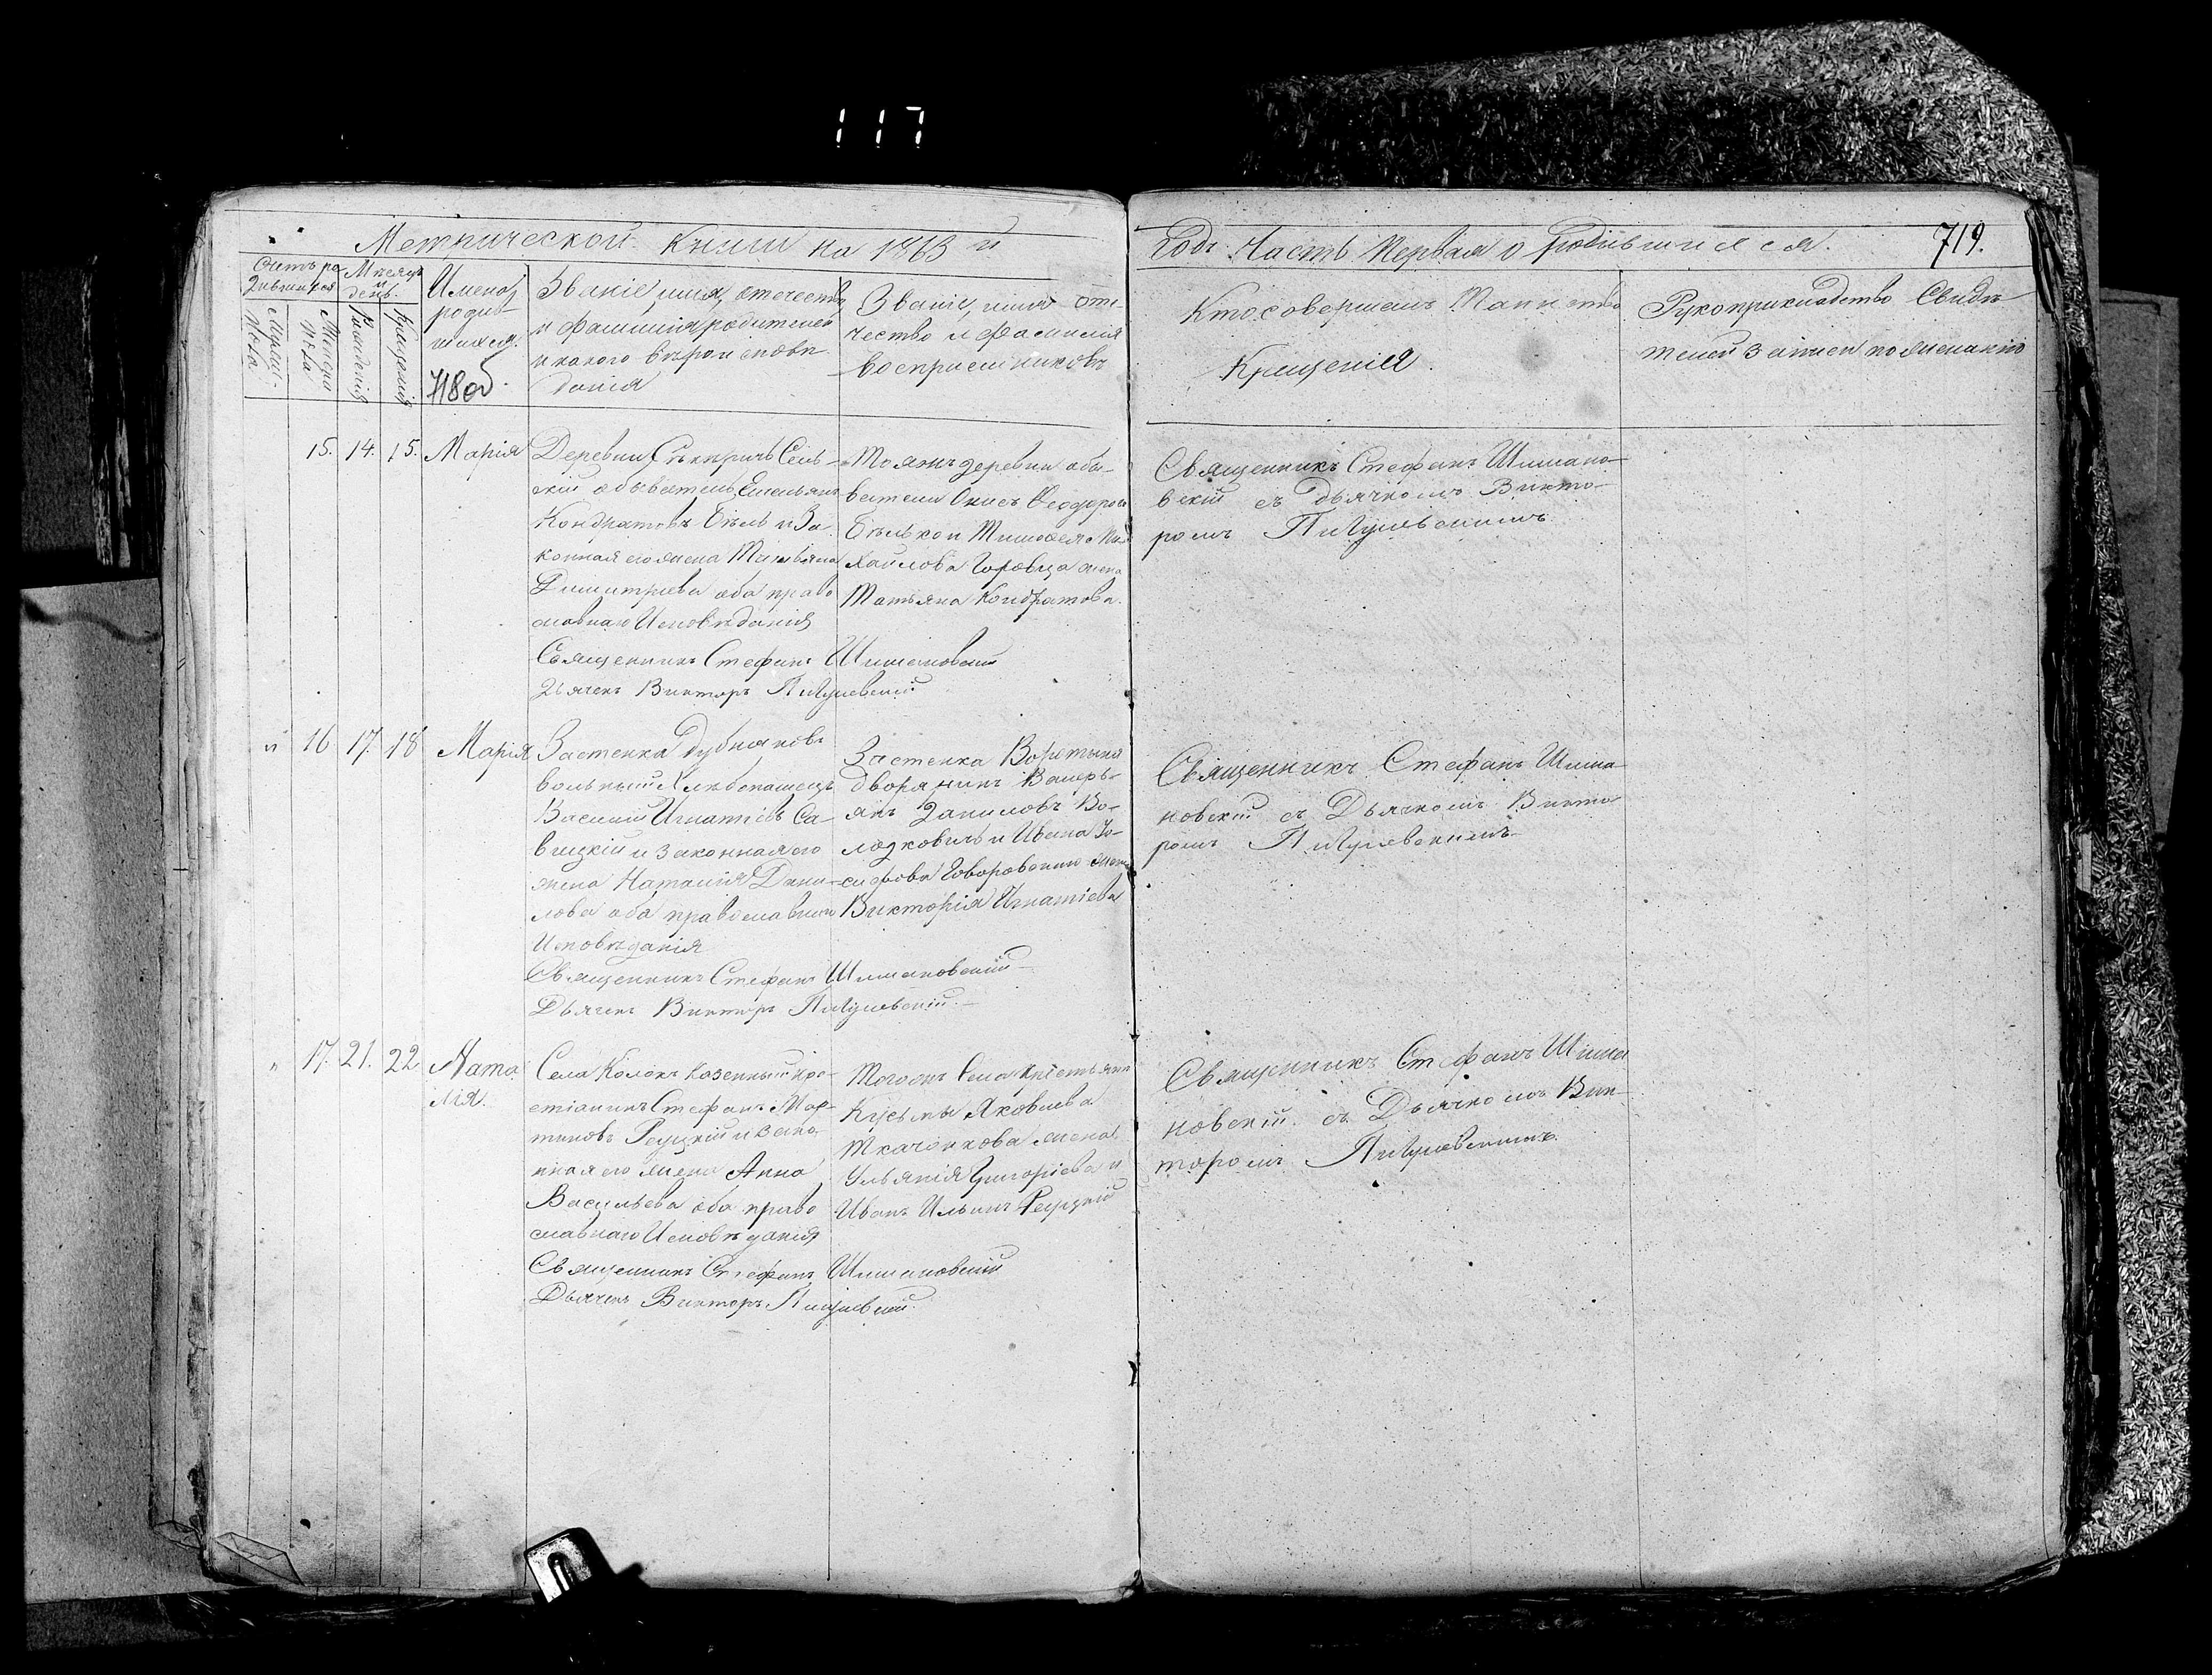 117
Метрической Книги на 1863 й
Годъ Часть Первая о родившихся.
719.
Счетъ ро
дившихся
Мужеск.
пола.
Женска
пола
Мѣсяцъ
и
день.
Рожденія
Крещенія
Имена
родив
шихся.
718 об.
Званіе, имя, отечество,
и фамилія родителей
и какого вѣроисповѣ
данія
Званіе, имя оте-
чество и фамилія
воспріемниковъ
Кто совершалъ Таинство
Крещенія.
Рукоприкладство Свидѣ
телей записи по желанію
15. 14. 15. Марія
Деревни Сель-
скій обыватель Емельянъ
Кондратовъ Бѣль и За
конная его жена Татьяна
Димитріева оба право
славнаго Исповѣданія
Священникъ Стефанъ Шимановскій
Дьячекъ Викторъ
Тояжъ деревни обы-
ватели Феодоровъ
Бѣлько и Тимофея Ми
хайлова жена
Татьяна Кондратова.
Священникъ Стефанъ Шимано-
вскій съ Дьячкомъ Викто-
ромъ
" 16 17. 18 Марія
Застенка Дубняковъ
вольный Хлѣбопашецъ
Василій Игнатіевъ Са-
вицкій и законная его
жена Наталія Дани-
лова оба православнаго
Исповѣданія
Священникъ Стефанъ Шимановскій
Дьячекъ Викторъ
Застенка
дворянинъ Валерь-
янъ Даниловъ Во-
лодковичъ и Ивана Іо-
сифова Говоровскаго жена
Викторія Игнатіева
Священникъ Стефанъ Шима
новскій съ Дьячкомъ Викто
ромъ
" 17. 21. 22. Ната
лія.
Села Колокъ казенный кре-
стіанинъ Стефанъ Мар-
тиновъ Рецкій и зако
нная его жена Анна
Васильева оба право
славнаго Исповѣданія
Священникъ Стефанъ Шимановскій
Дьячекъ Викторъ
Тогожъ села крестьянина
Кузьмы Яковлева
Ткаченкова жена
Ульянія Григоріева и
Иванъ Ильинъ Рецкій
Священникъ Стефанъ Шима
новскій съ Дьячкомъ Вик-
торомъ